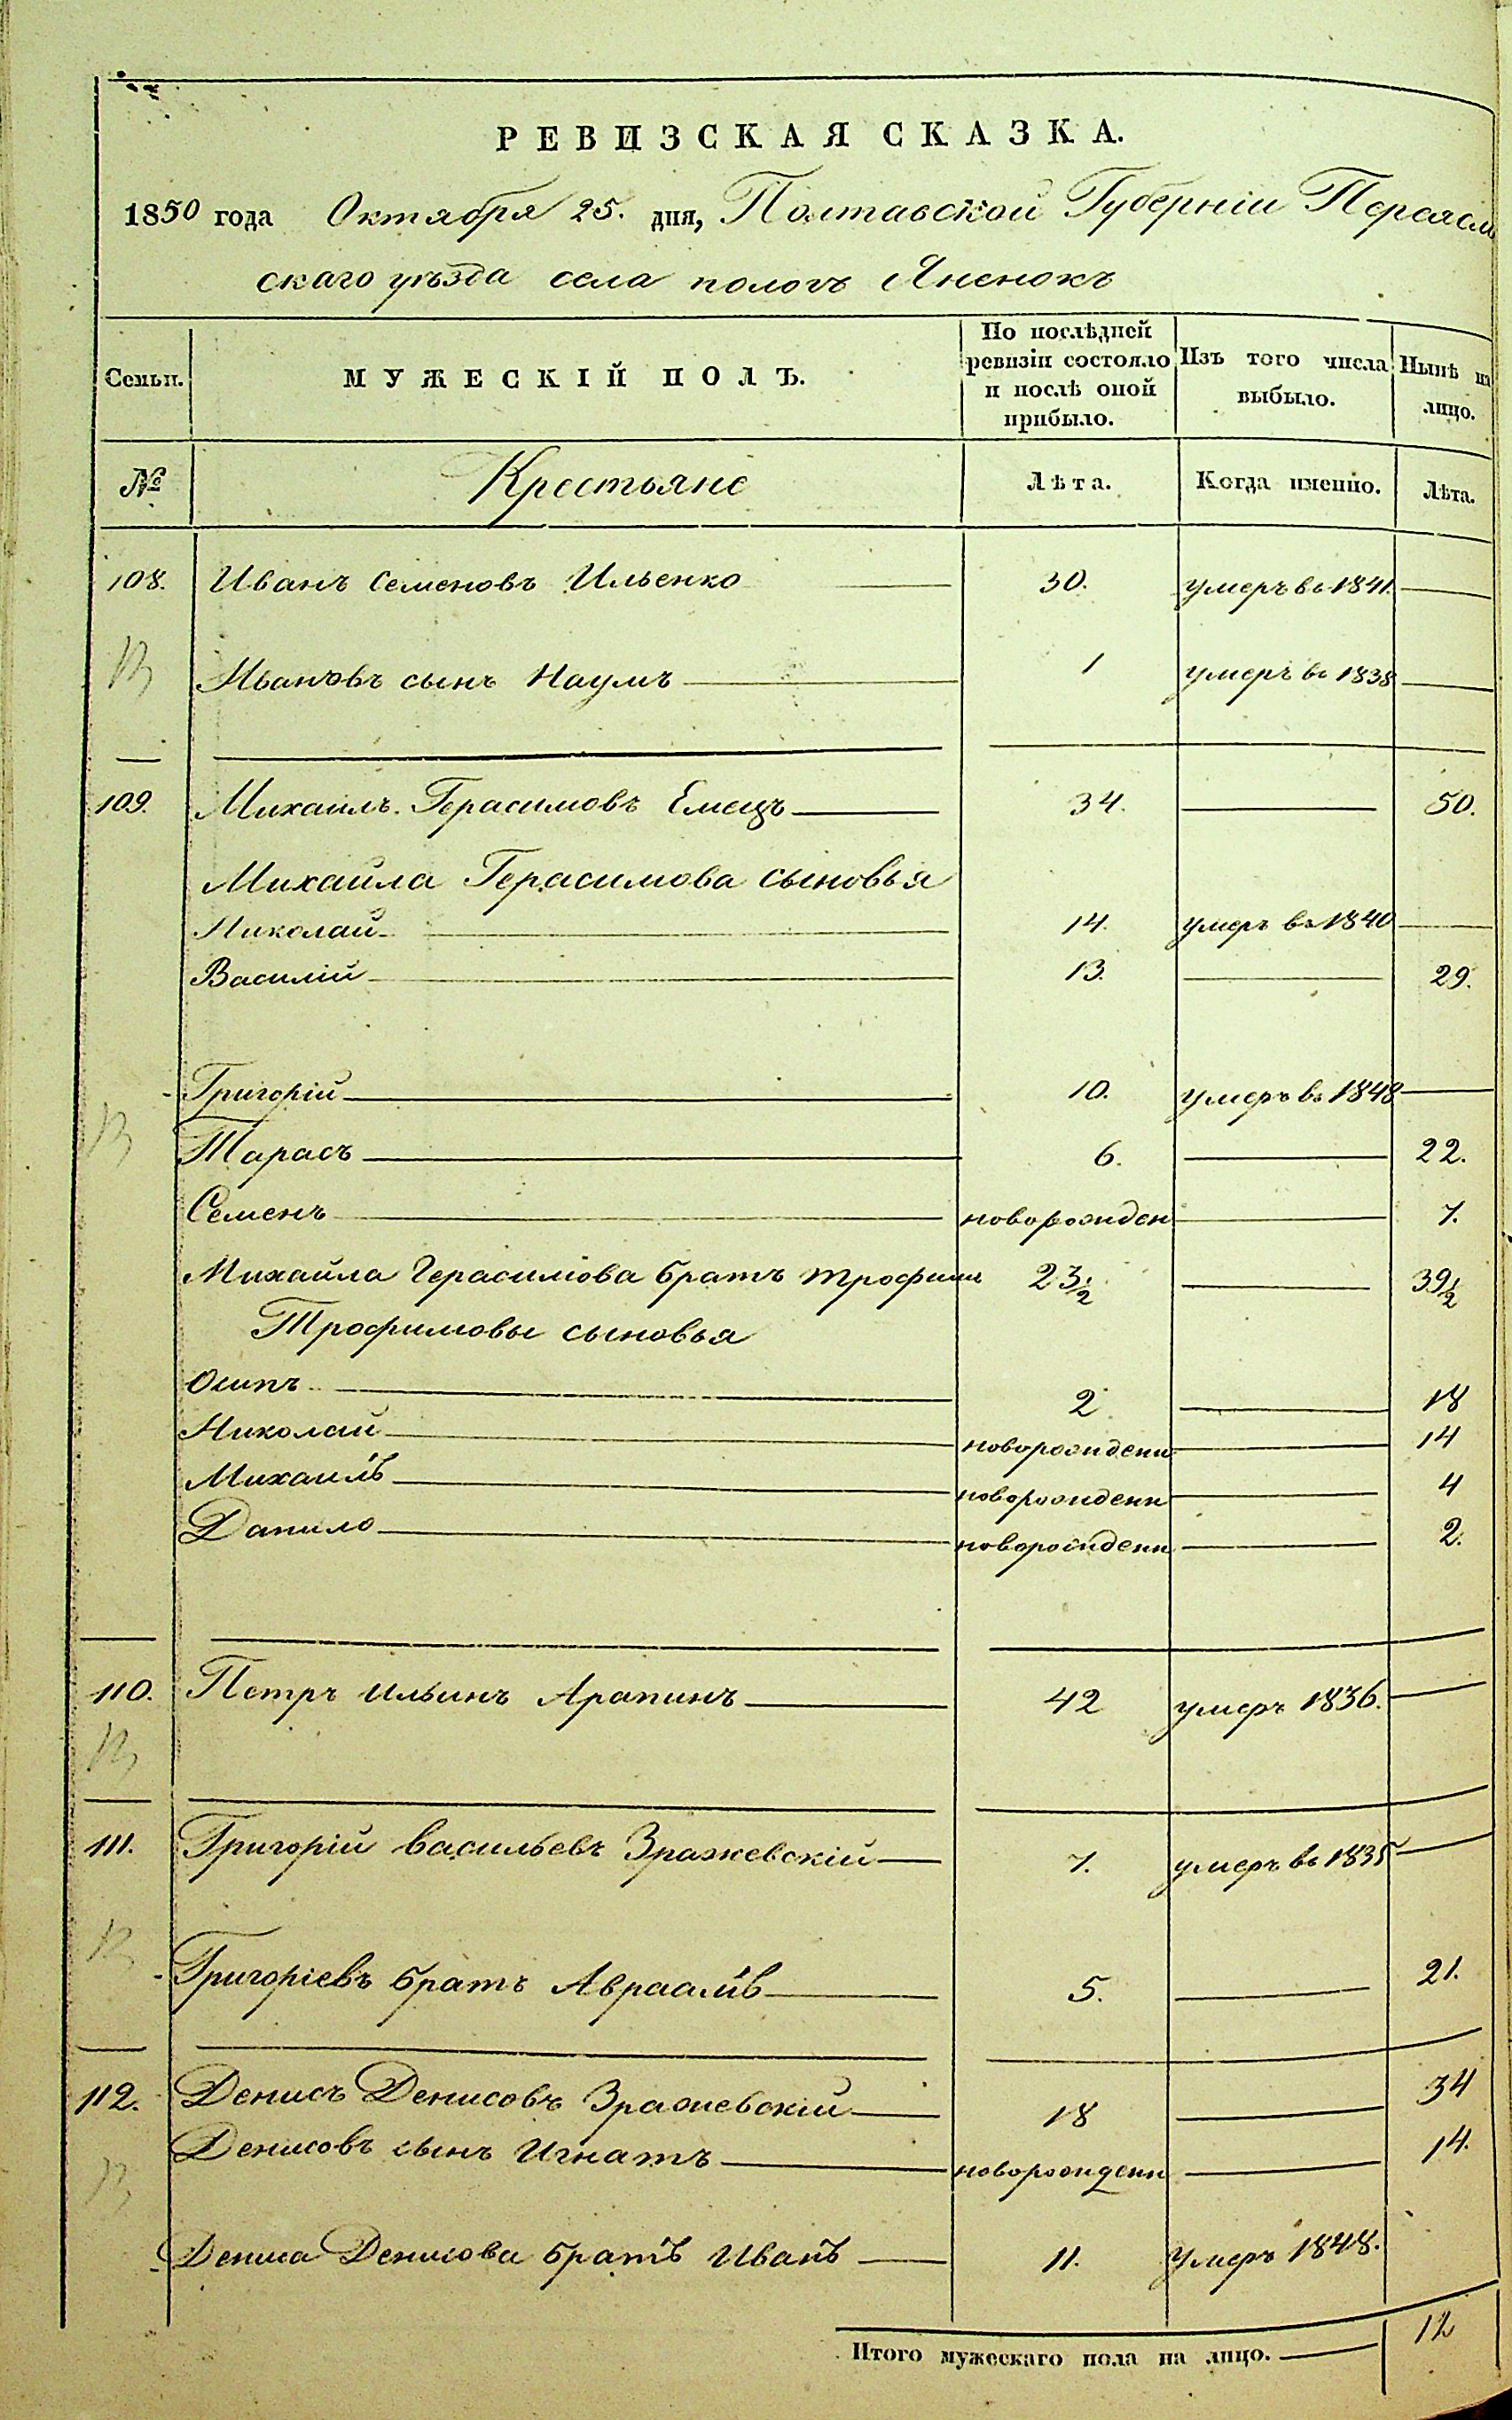 РЕВИЗСКАЯ СКАЗКА.
1850 года Октября 25. дня, Полтавской Губерніи Переясл
скаго уѣзда села пологъ Яненокъ
Семьи.
МУЖЕСКІЙ ПОЛЪ.
По послѣдней ревизіи состояло и послѣ оной прибыло.
Изъ того числа выбыло.
Нынѣ на лицо.
№ Крестьяне Лѣта. Когда именно. Лѣта.
108. Иванъ Семеновъ Ильенко 30. умеръ въ 1841.
Ивановъ сынъ Наумъ 1 умеръ въ 1838
109. Михаилъ Герасимовъ Емецъ 34. 50.
Михайла Герасимова сыновья
Николай 14. умеръ въ 1840
Василій 13. 29.
Григорій 10. умеръ въ 1848
Тарасъ 6. 22.
Семенъ новорожден 7.
Михайла Герасимова братъ трофимъ 23½ 39½
Трофимовы сыновья
Осипъ 2 18
Николай новорожденн 14
Михаилъ новорожденн 4
Данило новорожденн 2.
110. Петръ Ильинъ Арапинъ 42 умеръ 1836.
111. Григорій Васильевъ Зражевскій 7. умеръ въ 1835
Григоріевъ братъ Авраамъ 5. 21.
112. Денисъ Денисовъ Зражевскій 18 34
Денисовъ сынъ Игнатъ новорожденн 14.
Дениса Денисова братъ Иванъ 11. Умеръ 1848.
Итого мужескаго пола на лицо. 12